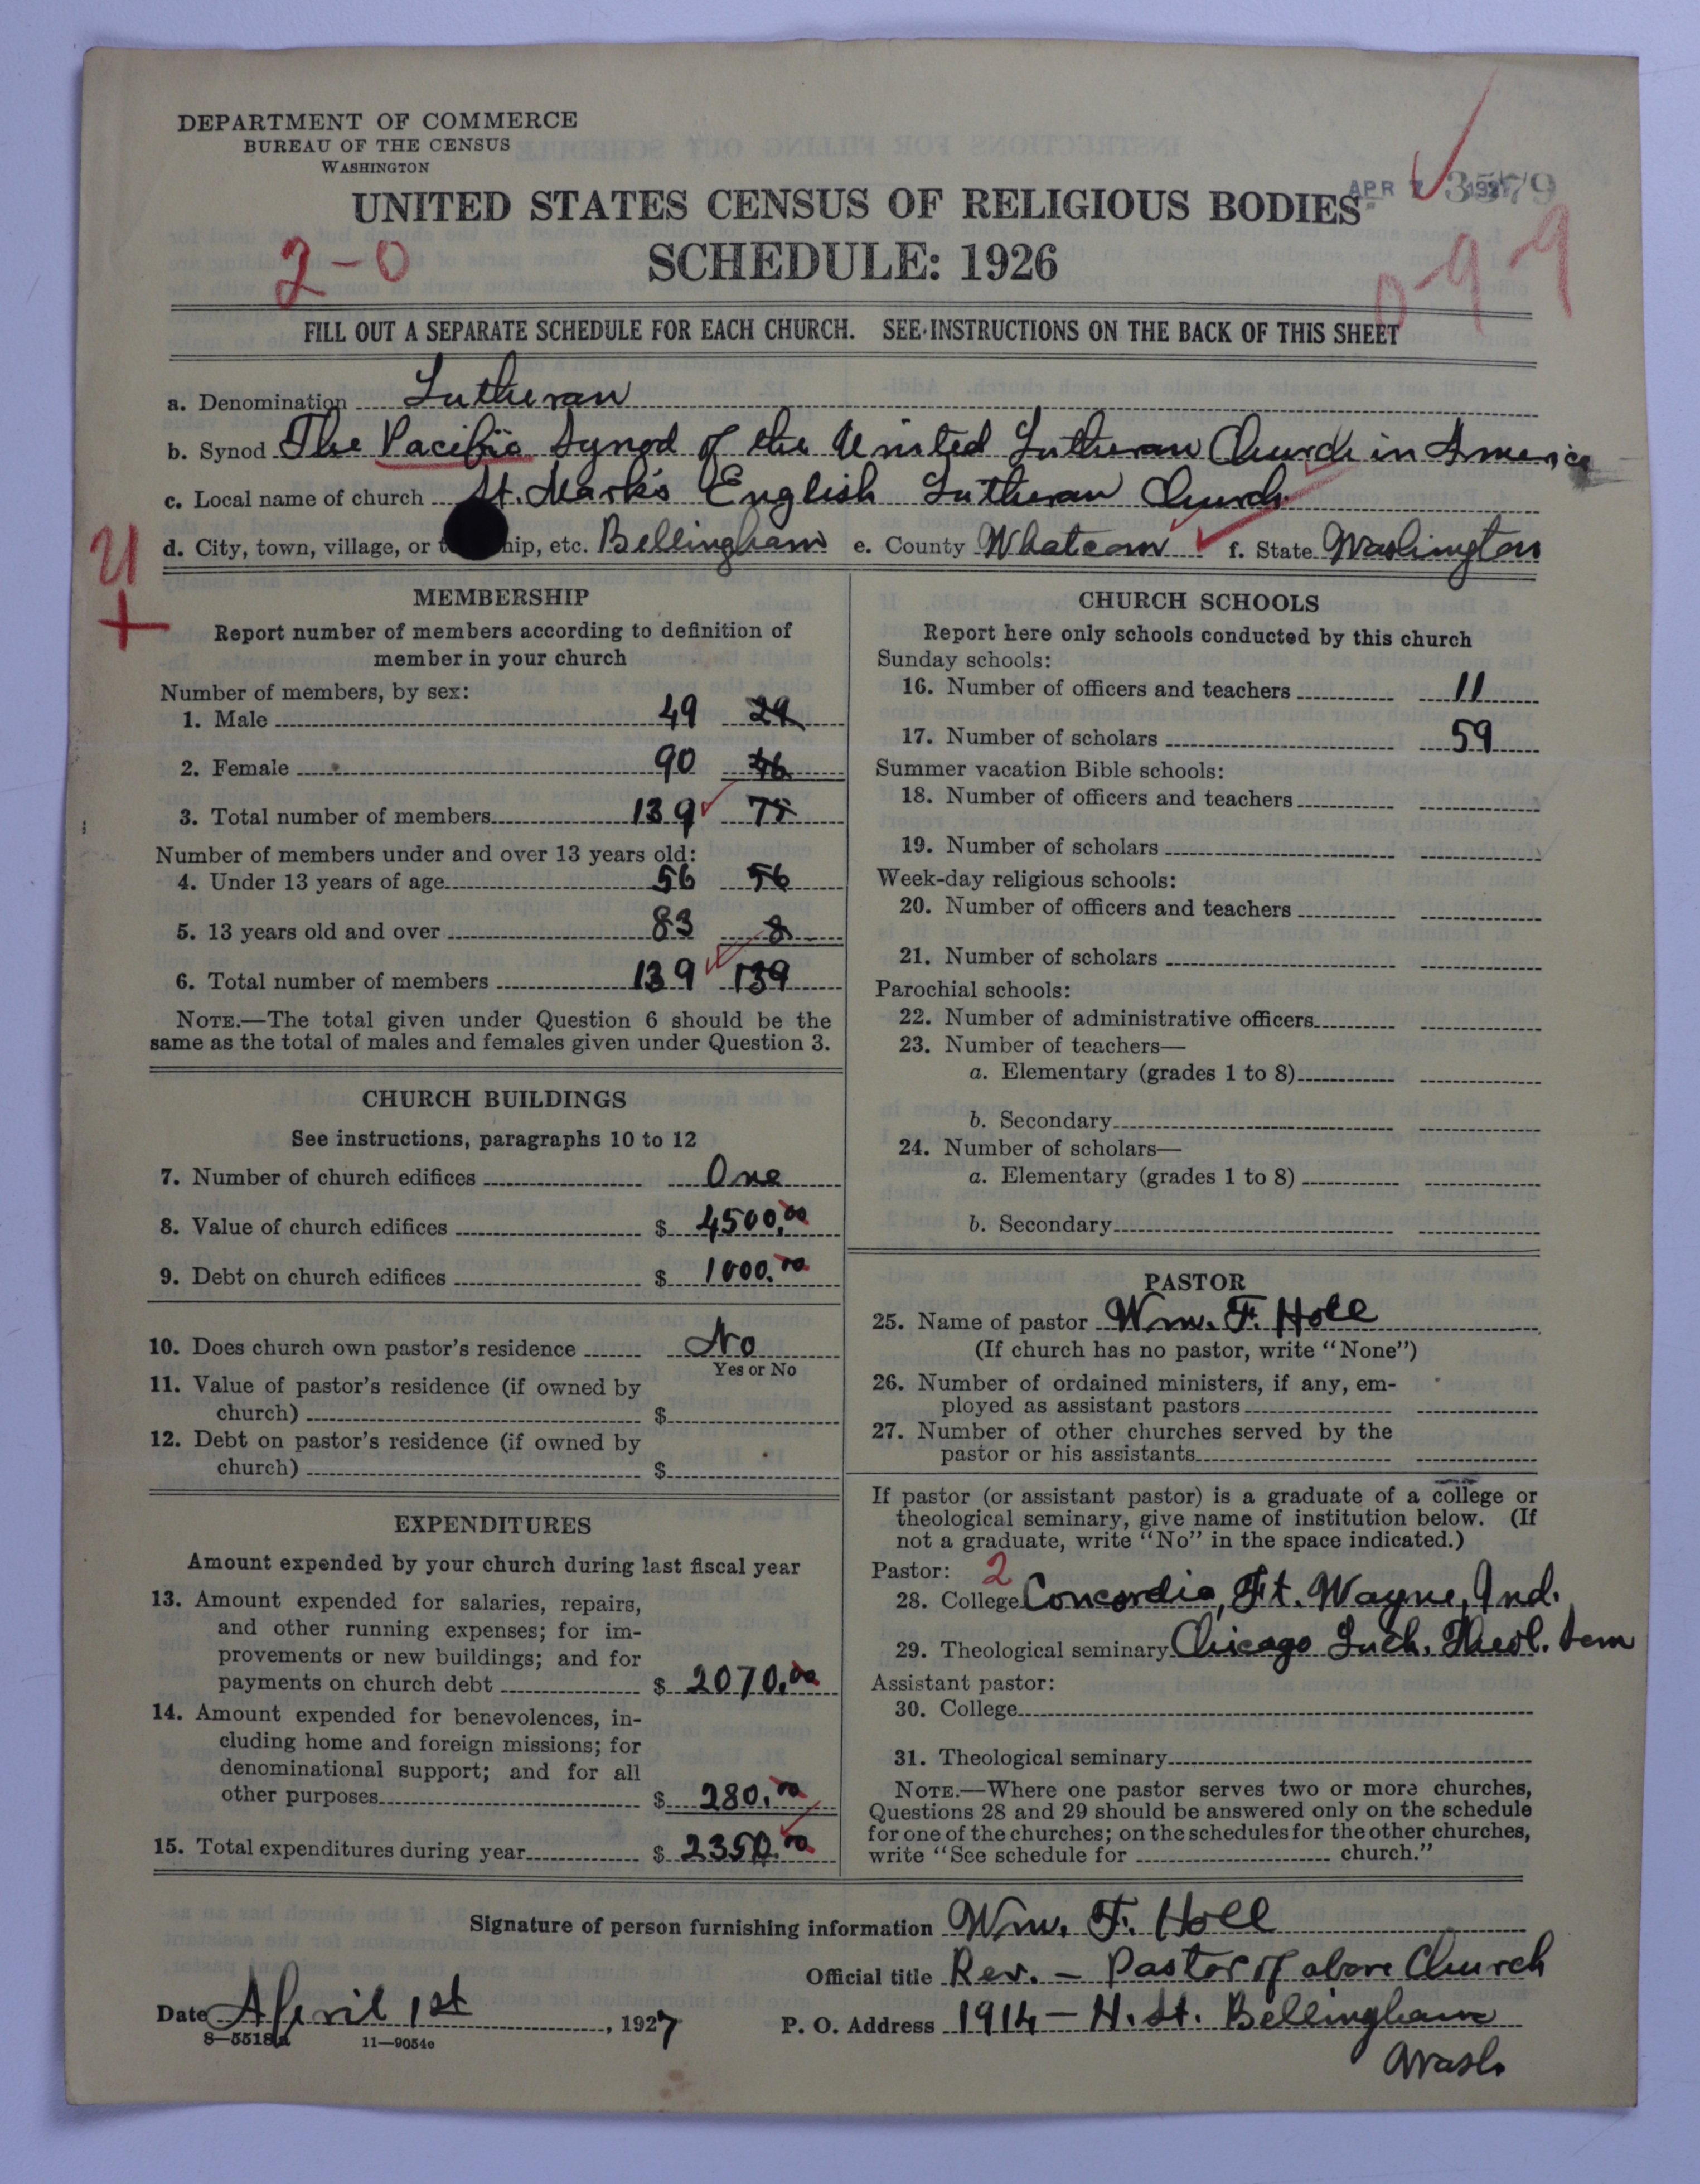 DEPARTMENT OF COMMERCE
BUREAU OF THE CENSUS
WASHINGTON
UNITED STATES CENSUS OF RELIGIOUS BODIES
APR 1927 3579
SCHEDULE: 1926
2-0
0-9-9
FILL OUT A SEPARATE SCHEDULE FOR EACH CHURCH. SEE INSTRUCTIONS ON THE BACK OF THIS SHEET
a. Denomination Lutheran
b. Synod The Pacific Synod of the United Lutheran Church in America
c. Local name of church St. Mark's English Lutheran Church
d. City, town, village, or hip, etc. Bellingham e. County Whatcom f. State Washington
MEMBERSHIP
Report number of members according to definition of
member in your church
Number of members, by sex:
1. Male 49 29
2. Female 90 46
3. Total number of members 139 75
Number of members under and over 13 years old:
4. Under 13 years of age 56 56
5. 13 years old and over 83 8
6. Total number of members 139 139
NOTE.—The total given under Question 6 should be the
same as the total of males and females given under Question 3.
CHURCH BUILDINGS
See instructions, paragraphs 10 to 12
7. Number of church edifices One
8. Value of church edifices $ 4500.00
9. Debt on church edifices $ 1000.00
10. Does church own pastor's residence No
Yes or No
11. Value of pastor's residence (if owned by
church) $
12. Debt on pastor's residence (if owned by
church) $
EXPENDITURES
Amount expended by your church during last fiscal year
13. Amount expended for salaries, repairs,
and other running expenses; for im-
provements or new buildings; and for
payments on church debt $ 2070.00
14. Amount expended for benevolences, in-
cluding home and foreign missions; for
denominational support; and for all
other purposes $ 280.00
15. Total expenditures during year $ 2350.00
CHURCH SCHOOLS
Report here only schools conducted by this church
Sunday schools:
16. Number of officers and teachers 11
17. Number of scholars 59
Summer vacation Bible schools:
18. Number of officers and teachers
19. Number of scholars
Week-day religious schools:
20. Number of officers and teachers
21. Number of scholars
Parochial schools:
22. Number of administrative officers
23. Number of teachers—
a. Elementary (grades 1 to 8)
b. Secondary
24. Number of scholars—
a. Elementary (grades 1 to 8)
b. Secondary
PASTOR
25. Name of pastor Wm. F. Holl
(If church has no pastor, write "None")
26. Number of ordained ministers, if any, em-
ployed as assistant pastors
27. Number of other churches served by the
pastor or his assistants
If pastor (or assistant pastor) is a graduate of a college or
theological seminary, give name of institution below. (If
not a graduate, write "No" in the space indicated.)
Pastor: 2
28. College Concordia, Ft. Wayne, Ind.
29. Theological seminary Chicago Luth. Theol. Sem
Assistant pastor:
30. College
31. Theological seminary
NOTE.—Where one pastor serves two or more churches,
Questions 28 and 29 should be answered only on the schedule
for one of the churches; on the schedules for the other churches,
write "See schedule for church."
Signature of person furnishing information Wm. F. Holl
Official title Rev. - Pastor of above Church
Date April 1st, 1927
P. O. Address 1914 - H. St. Bellingham
Wash.
8—5518a 11—9054c